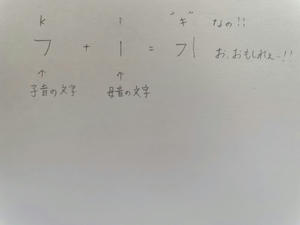 k i "ギ" なの!!
ㄱ + ㅣ = 기 お、おもしれぇー!!
↑ ↑
子音の文字 母音の文字